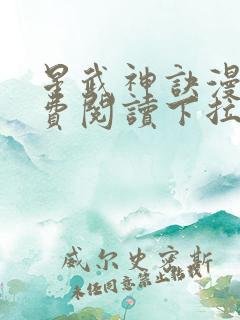 星武神訣漫
費閱讀下拉
威尔史密斯
未经同意禁止转载